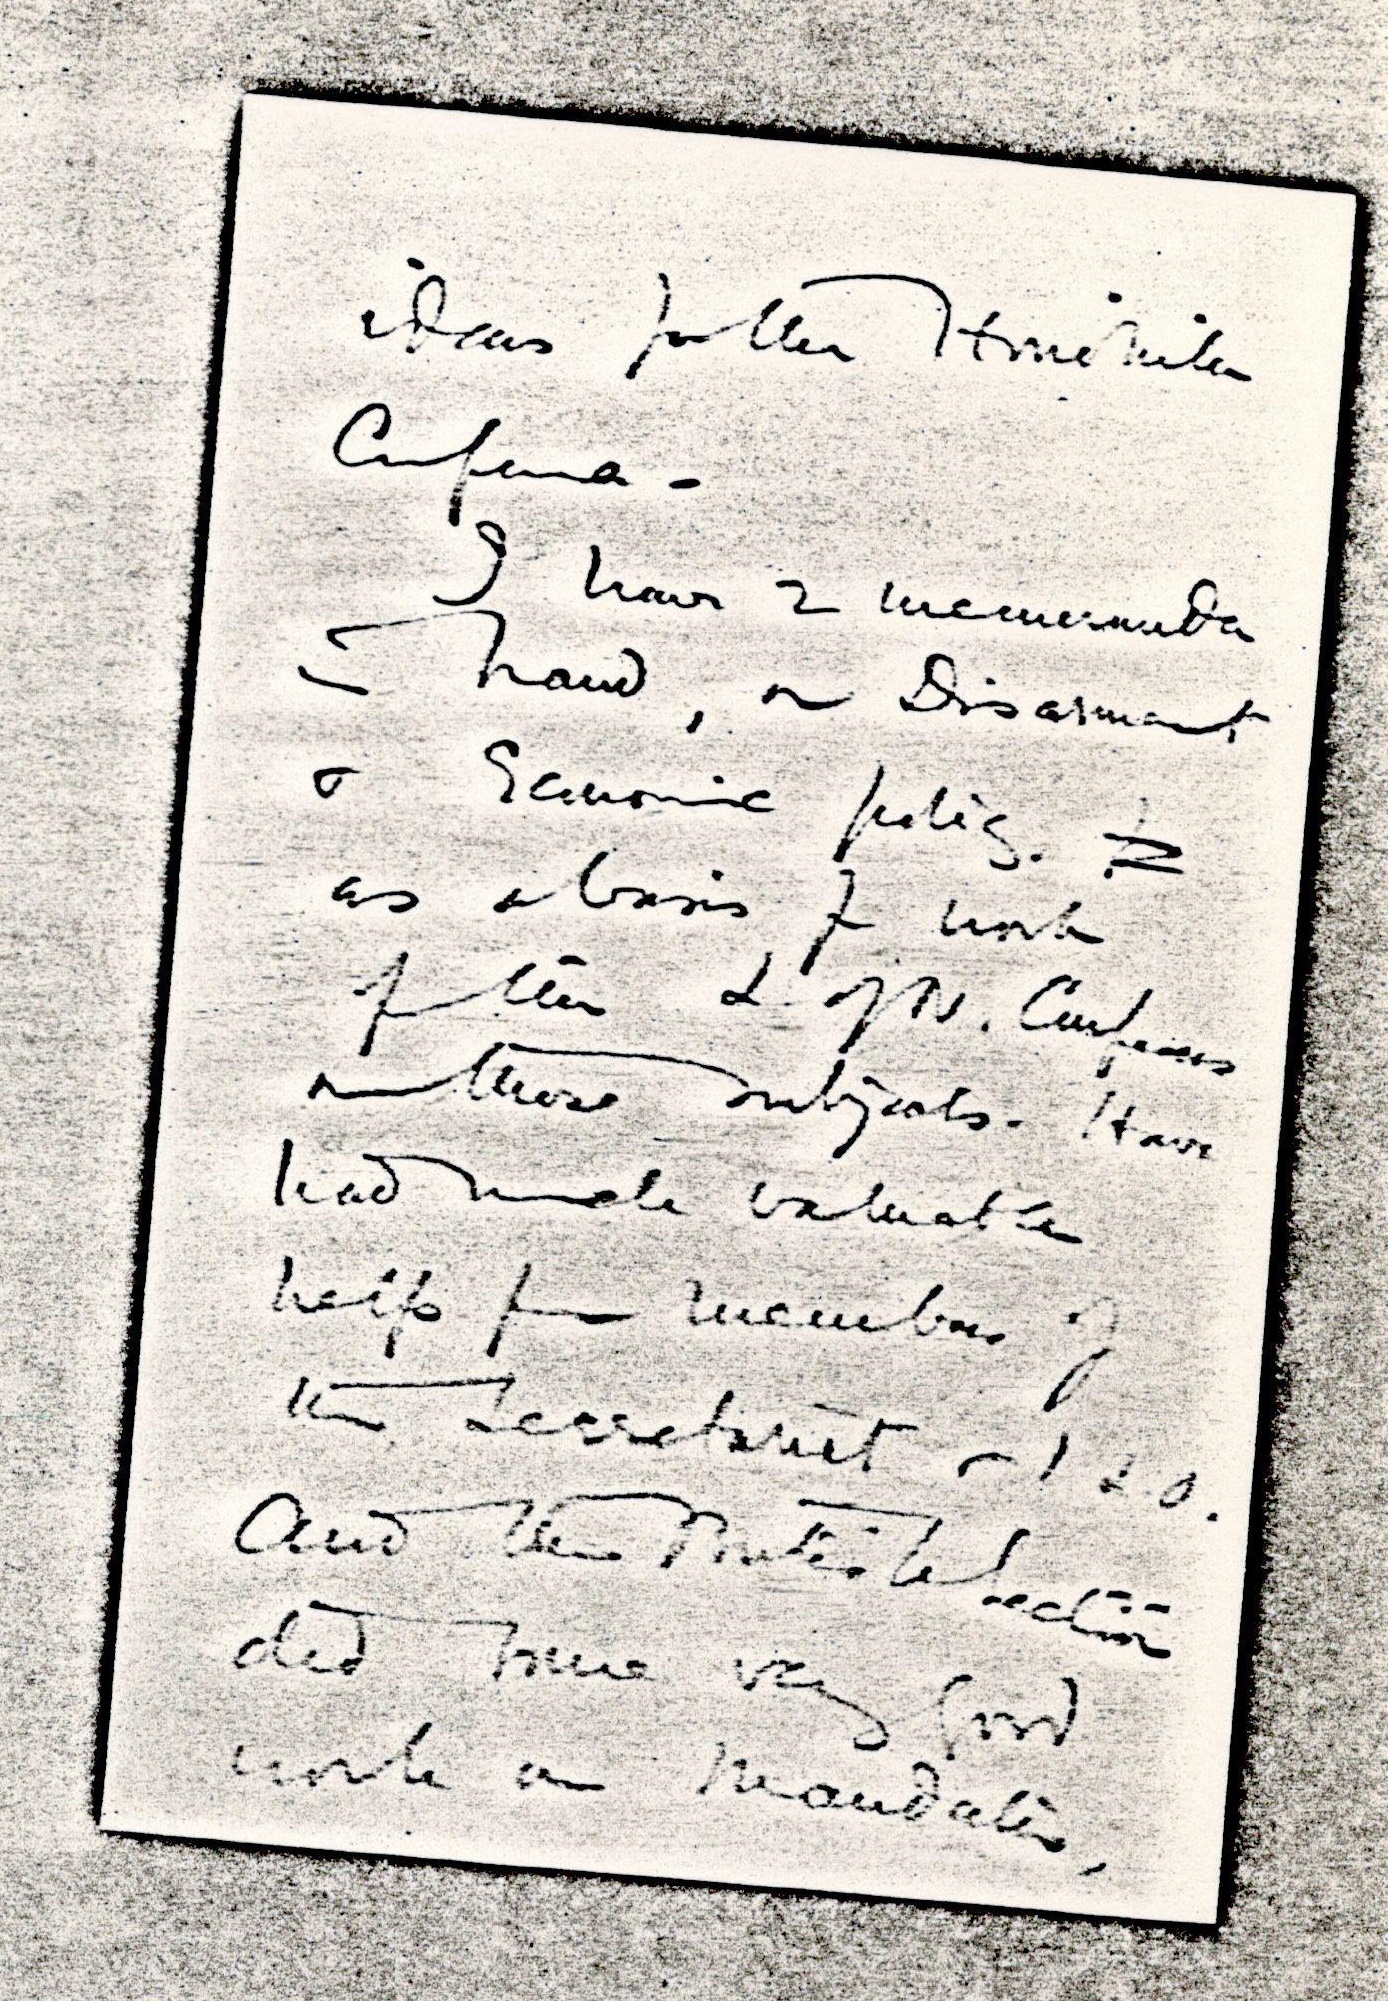 ideas for the Honolulu
Conference.
I have 2 memoranda
in hand, on Disarmament
& Economic policy.
as a basis of work
for the L of N. Conferences
on those subjects. Have
had much valuable
help from members of
the Secretariat & I L.O.
And the Mandates Section
did some very good
work on Mandates,